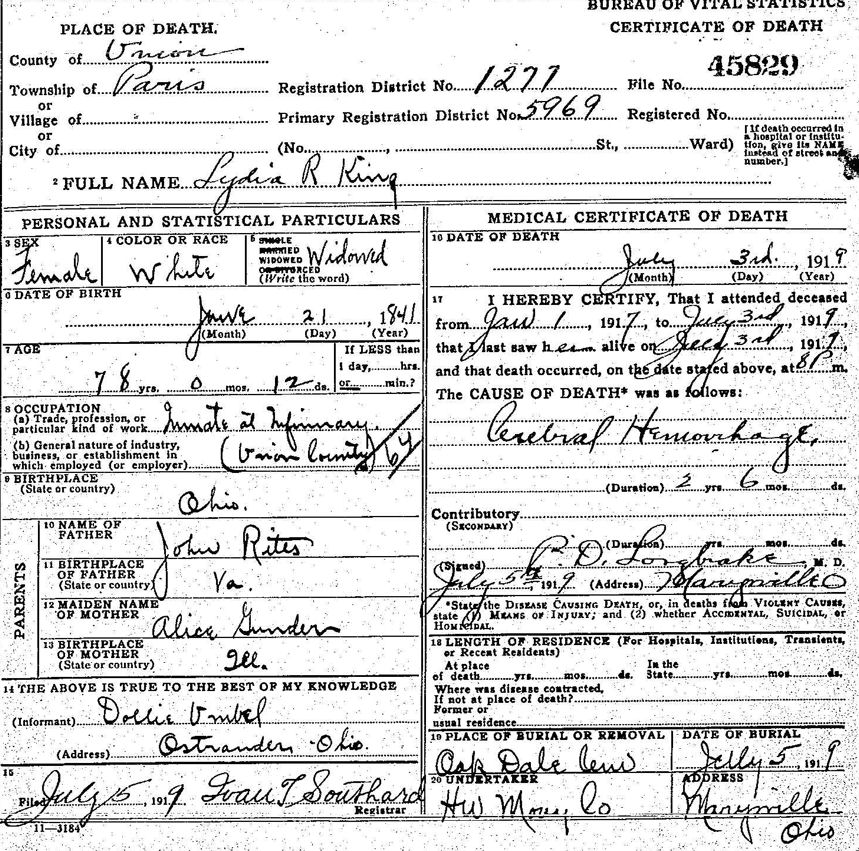 BUREAU OF VITAL STATISTICS
PLACE OF DEATH.
CERTIFICATE OF DEATH
County of Union
45829
Township of Paris Registration District No. 1277 File No.
or
Village of Primary Registration District No. 5969 Registered No.
or
City of (No. , St., Ward)
[If death occurred in a hospital or institution, give its NAME instead of street and number.]
2 FULL NAME Lydia R King
PERSONAL AND STATISTICAL PARTICULARS
3 SEX Female
4 COLOR OR RACE White
5 SINGLE MARRIED WIDOWED OR DIVORCED (Write the word) Widowed
6 DATE OF BIRTH
June 21, 1841
(Month) (Day) (Year)
7 AGE
78 yrs. 0 mos. 12 ds.
If LESS than
1 day, hrs.
or min.?
8 OCCUPATION
(a) Trade, profession, or
particular kind of work Inmate at Infirmary.
(b) General nature of industry,
business, or establishment in
which employed (or employer) (Union County)
9 BIRTHPLACE
(State or country)
Ohio.
PARENTS
10 NAME OF
FATHER
John Rites
11 BIRTHPLACE
OF FATHER
(State or country) Va.
12 MAIDEN NAME
OF MOTHER
Alice Gunder
13 BIRTHPLACE
OF MOTHER
(State or country) Ill.
14 THE ABOVE IS TRUE TO THE BEST OF MY KNOWLEDGE
(Informant) Dollie Umbel
(Address) Ostrander Ohio.
15
Filed July 5, 1919 Ivan T Southard
Registrar
11—3184
MEDICAL CERTIFICATE OF DEATH
16 DATE OF DEATH
July 3rd., 1919
(Month) (Day) (Year)
17 I HEREBY CERTIFY, That I attended deceased
from Jan 1, 1917, to July 3rd, 1919,
that I last saw her alive on July 3rd, 1919,
and that death occurred, on the date stated above, at 8 P m.
The CAUSE OF DEATH* was as follows:
Cerebral Hemorrhage,
(Duration) 2 yrs 6 mos. ds.
Contributory
(SECONDARY)
(Duration) yrs. mos. ds.
(Signed) P. D. Longbrake M. D.
July 5th, 1919 (Address) Marysville O
*State the DISEASE CAUSING DEATH, or, in deaths from VIOLENT CAUSES,
state (1) MEANS OF INJURY; and (2) whether ACCIDENTAL, SUICIDAL, or
HOMICIDAL.
18 LENGTH OF RESIDENCE (For Hospitals, Institutions, Transients,
or Recent Residents)
At place In the
of death yrs. mos. ds. State yrs. mos. ds.
Where was disease contracted,
If not at place of death?
Former or
usual residence
19 PLACE OF BURIAL OR REMOVAL
Oak Dale Cem
DATE OF BURIAL
July 5, 1919
20 UNDERTAKER
ADDRESS
Marysville
Ohio